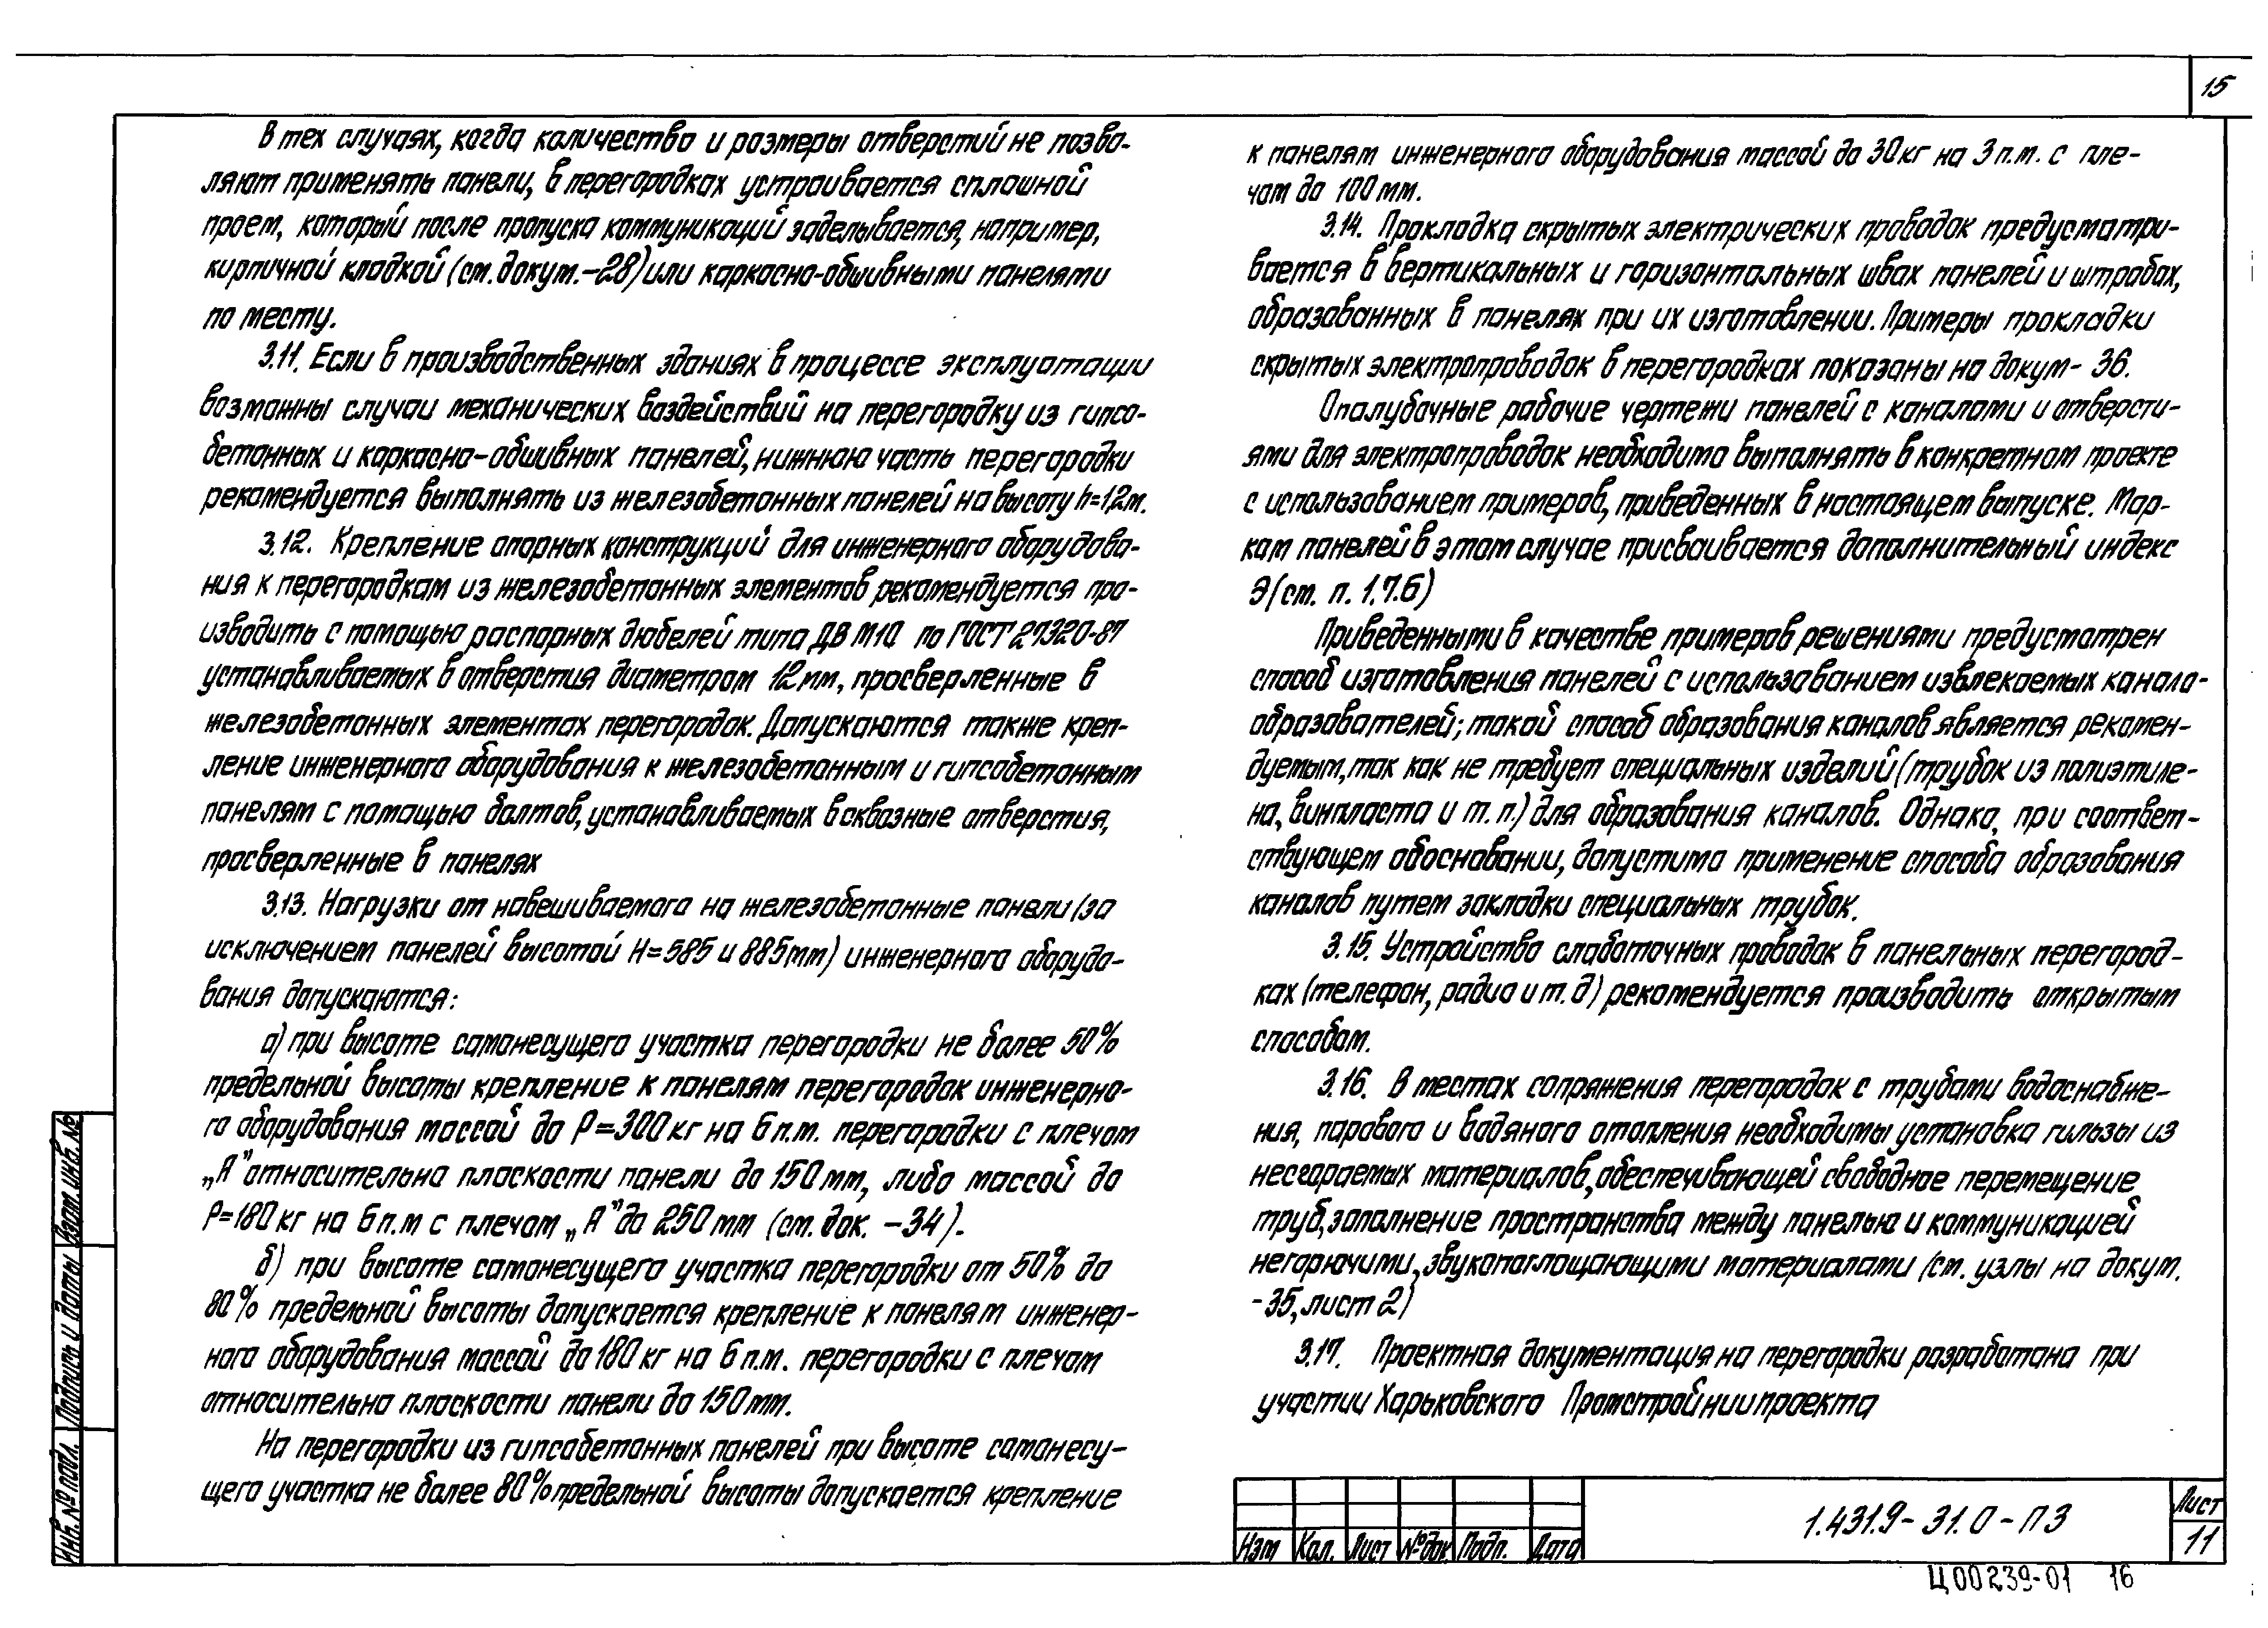 15
В тех случаях, когда количество и размеры отверстий не позво-
ляют применять панели, в перегородках устраивается сплошной
проем, который после пропуска коммуникаций заделывается, например,
кирпичной кладкой (см. докум.-28) или каркасно-обшивными панелями
по месту.
3.11. Если в производственных зданиях в процессе эксплуатации
возможны случаи механических воздействий на перегородку из гипсо-
бетонных и каркасно-обшивных панелей, нижнюю часть перегородки
рекомендуется выполнять из железобетонных панелей на высоту h=1,2м.
3.12. Крепление опорных конструкций для инженерного оборудова-
ния к перегородкам из железобетонных элементов рекомендуется про-
изводить с помощью распорных дюбелей типа ДВ М10 по ГОСТ 27320-87
устанавливаемых в отверстия диаметром 12мм, просверленные в
железобетонных элементах перегородок. Допускаются также креп-
ление инженерного оборудования к железобетонным и гипсобетонным
панелям с помощью болтов, устанавливаемых в сквозные отверстия,
просверленные в панелях
3.13. Нагрузки от навешиваемого на железобетонные панели (за
исключением панелей высотой Н=585 и 885мм) инженерного оборудо-
вания допускаются:
а) при высоте самонесущего участка перегородки не более 50%
предельной высоты крепление к панелям перегородок инженерно-
го оборудования массой до Р=300кг на 6п.м. перегородки с плечом
„А" относительно плоскости панели до 150мм, либо массой до
Р=180кг на 6п.м с плечом „А" до 250мм (см. док. -34).
б) при высоте самонесущего участка перегородки от 50% до
80% предельной высоты допускается крепление к панелям инженер-
ного оборудования массой до 180кг на 6п.м. перегородки с плечом
относительно плоскости панели до 150мм.
На перегородки из гипсобетонных панелей при высоте самонесу-
щего участка не более 80% предельной высоты допускается крепление
к панелям инженерного оборудования массой до 30кг на 3п.м. с пле-
чом до 100мм.
3.14. Прокладка скрытых электрических проводок предусматри-
вается в вертикальных и горизонтальных швах панелей и штрабах,
образованных в панелях при их изготовлении. Примеры прокладки
скрытых электропроводок в перегородках показаны на докум- 36.
Опалубочные рабочие чертежи панелей с каналами и отверсти-
ями для электропроводок необходимо выполнять в конкретном проекте
с использованием примеров, приведенных в настоящем выпуске. Мар-
кам панелей в этом случае присваивается дополнительный индекс
Э (см. п. 1.7.6)
Приведенными в качестве примеров решениями предусмотрен
способ изготовления панелей с использованием извлекаемых канало-
образователей; такой способ образования каналов является рекомен-
дуемым, так как не требует специальных изделий (трубок из полиэтиле-
на, винпласта и т. п.) для образования каналов. Однако, при соответ-
ствующем обосновании, допустимо применение способа образования
каналов путем закладки специальных трубок.
3.15. Устройство слаботочных проводок в панельных перегород-
ках (телефон, радио и т. д) рекомендуется производить открытым
способом.
3.16. В местах сопряжения перегородок с трубами водоснабже-
ния, парового и водяного отопления необходимы установка гильзы из
несгораемых материалов, обеспечивающей свободное перемещение
труб, заполнение пространства между панелью и коммуникацией
негорючими, звукопоглощающими материалами (см. узлы на докум.
-35, лист 2)
3.17. Проектная документация на перегородки разработана при
участии Харьковского Промстройниипроекта
Инв. № подл. Подпись и даты Взам. инв. №
Изм Кол. Лист №док Подп. Дата
1.431.9-31.0-ПЗ
Лист
11
Ц00239-01 16